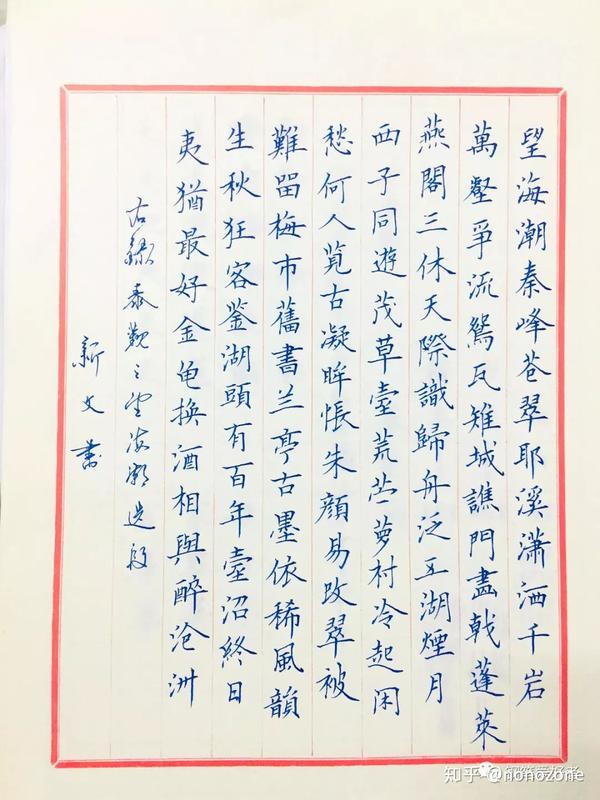 望海潮秦峰苍翠耶溪潇洒千岩
萬壑爭流鴛瓦雉城譙門畫戟蓬萊
燕閣三休天際識歸舟泛五湖煙月
西子同遊茂草臺荒苎萝村冷起闲
愁何人览古凝眸悵朱顏易改翠被
難留梅市舊書兰亭古墨依稀風韻
生秋狂客鉴湖頭有百年臺沼終日
夷猶最好金龟換酒相與醉沧洲
右録秦觀之望海潮选段
新文書
知乎 @nonozone